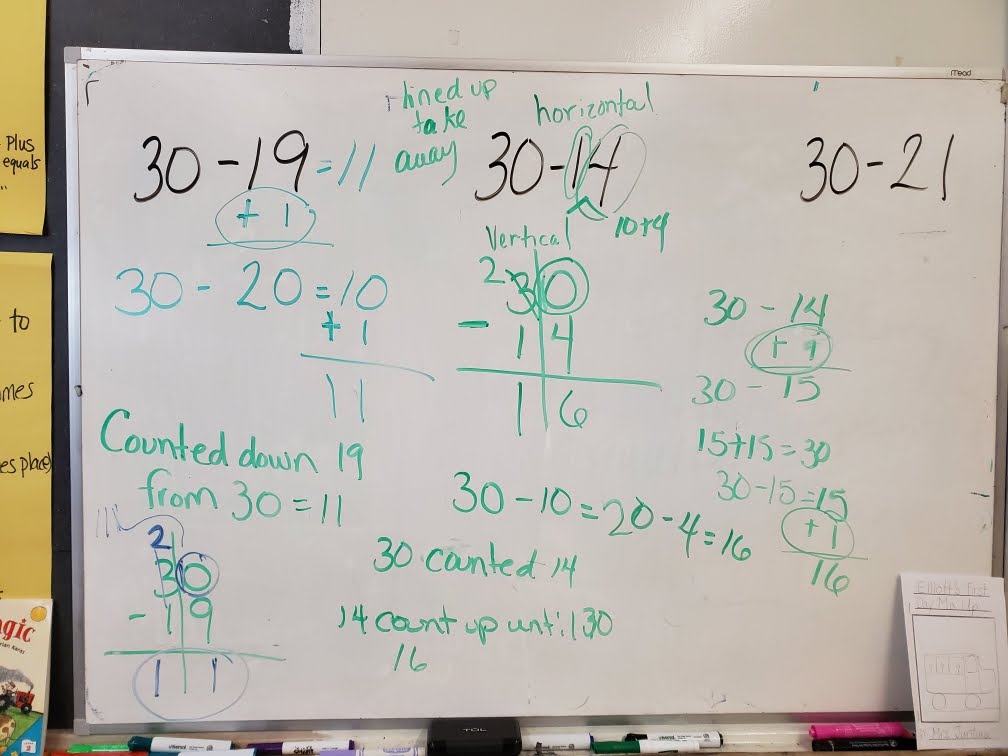 Plus
equals
to
mes
es place)
mead
30 - 19 = 11
+ 1
30 - 20 = 10
+ 1
11
Counted down 19
from 30 = 11
2
30
- 19
11
lined up
take
away
horizontal
30 - 14
10+4
Vertical
2
30
- 14
16
30 - 10 = 20 - 4 = 16
30 counted 14
14 count up until 30
16
30 - 21
30 - 14
+ 1
30 - 15
15 + 15 = 30
30 - 15 = 15
+ 1
16
gic
TCL